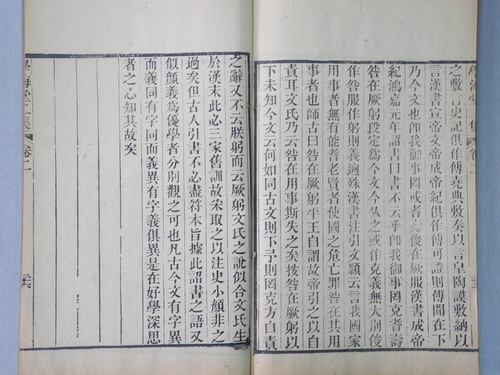 之敷言史記俱作傅堯典敷奏以言皐陶謨敷納以
言漢書宣帝文帝成帝紀俱作傅可證則傅聞在下
乃今文也卽我御事罔或耆壽俊在厥服漢書成帝
紀鴻嘉元年詔曰書不云乎卽我御事罔克耆壽
咎在厥躬段定爲今文今从之或作克義無大別俊
作咎服作躬則義迥殊漢書注引文穎云言我國家
用事者無有能耆老賢者使國之危亡罪咎在其用
事者也師古曰咎在厥躬平王自謂故帝引之以自
責耳文氏乃云咎在用事斯失之矣按咎在厥躬以
下未知今文云何如同古文則下予則罔克方自責
之辭又不云朕躬而云厥躬文氏之說似合文氏生
於漢末或必三家舊訓故采取之以注史小顔非之
過矣但古人引書不必盡符本旨據此詔書之語又
似顔義爲優學者分別觀之可也凡古今文有字異
而義同有字同而義異有字義俱異是在好學深思
者之心知其故矣
卷一